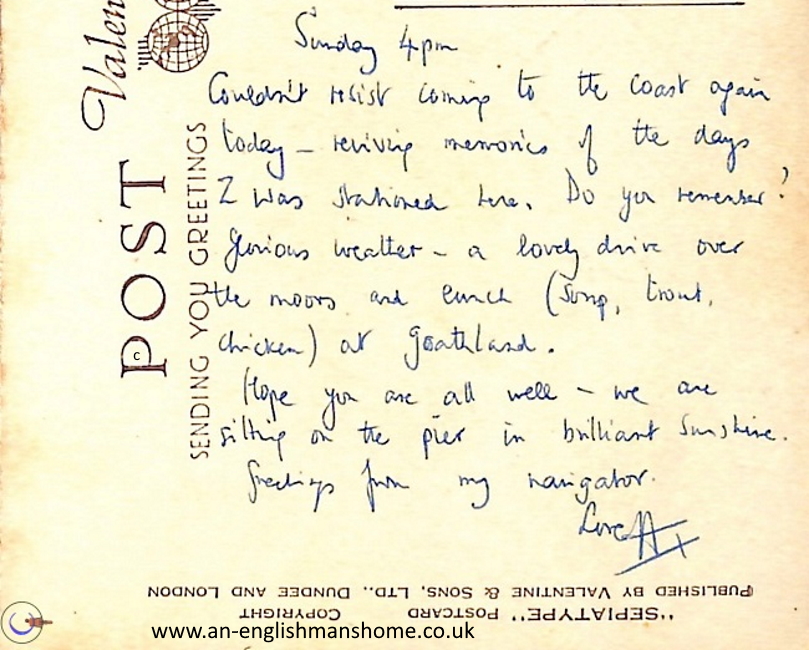 Valen
POST C
SENDING YOU GREETINGS
Sunday 4pm
Couldn't resist coming to the coast again
today – reviving memories of the days
I was stationed here. Do you remember?
Glorious weather – a lovely drive over
the moors and lunch (Soup, trout,
chicken) at Goathland.
Hope you are all well – we are
sitting on the pier in brilliant sunshine.
Greetings from my navigator.
Love
"SEPIATYPE" POSTCARD COPYRIGHT
PUBLISHED BY VALENTINE & SONS, LTD., DUNDEE AND LONDON
www.an-englishmanshome.co.uk